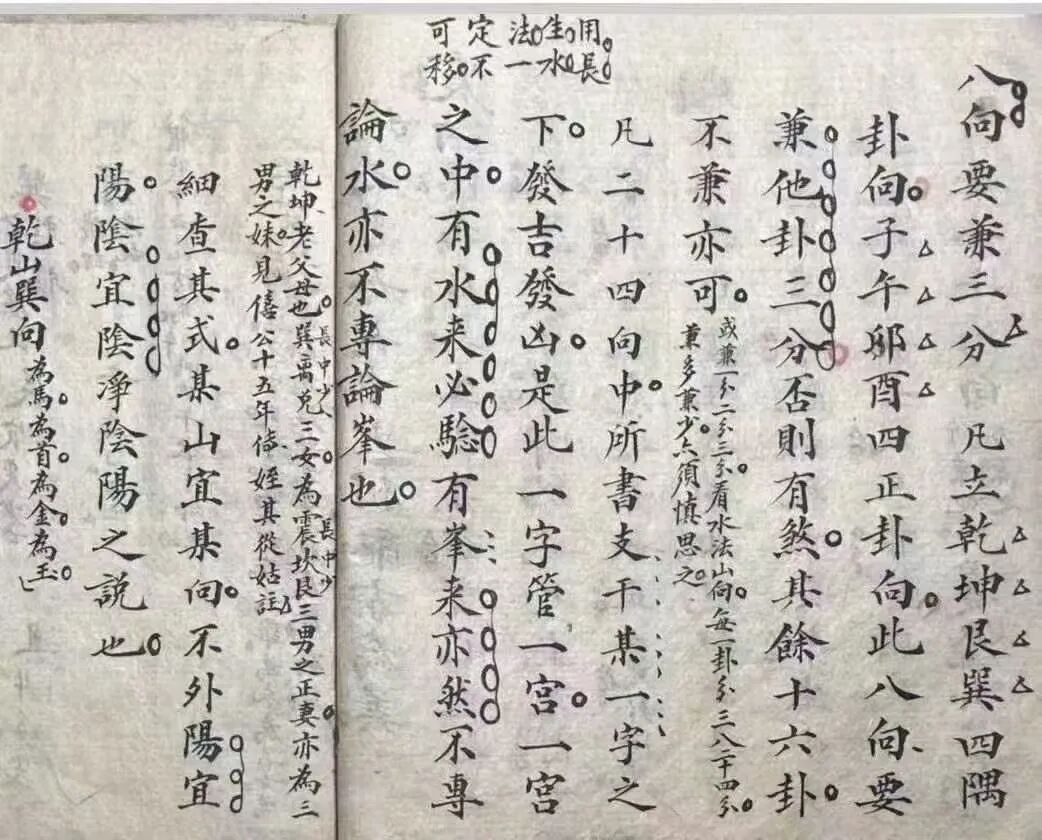 用長
生水
法一
定不
可移
八向要兼三分 凡立乾坤艮巽四隅
卦向子午邜酉四正卦向此八向要
兼他卦三分否則有煞其餘十六卦
不兼亦可
或兼一分二分三分看水法山向每一卦分三八二十四分
兼多兼少亦須慎思之
凡二十四向中所書支干某一字之
下發吉發凶是此一字管一宮一宮
之中有水来必騐有峯来亦然不專
論水亦不專論峯也
乾坤老父母也巽离兌三女為震坎艮三男之正妻亦為三
長中少
長中少
男之妹見僖公十五年傳姪其從姑註
細查其式某山宜某向不外陽宜
陽陰宜陰淨陰陽之說也
乾山巽向
為馬為首為金為玉